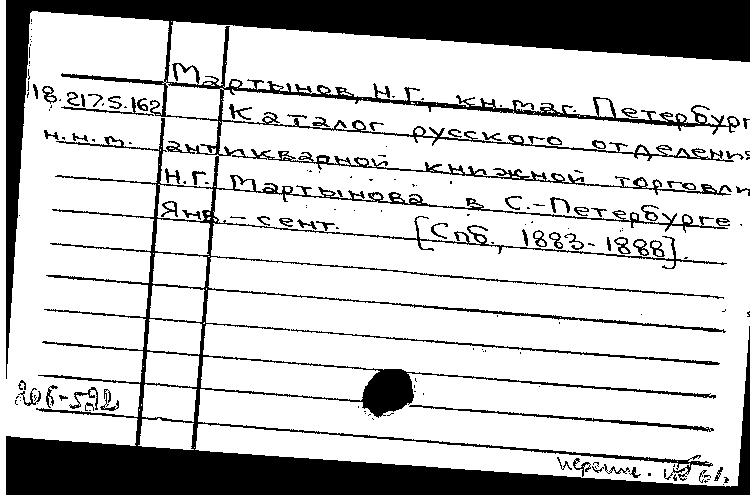 Мартынов, Н.Г., кн.маг. Петербург
18.217.5.162 Каталог русского отделения
н.н.т. антикварной книжной торговли
Н.Г. Мартынова в С.-Петербурге.
Янв.-сент. [Спб, 1883-1888].
206-592